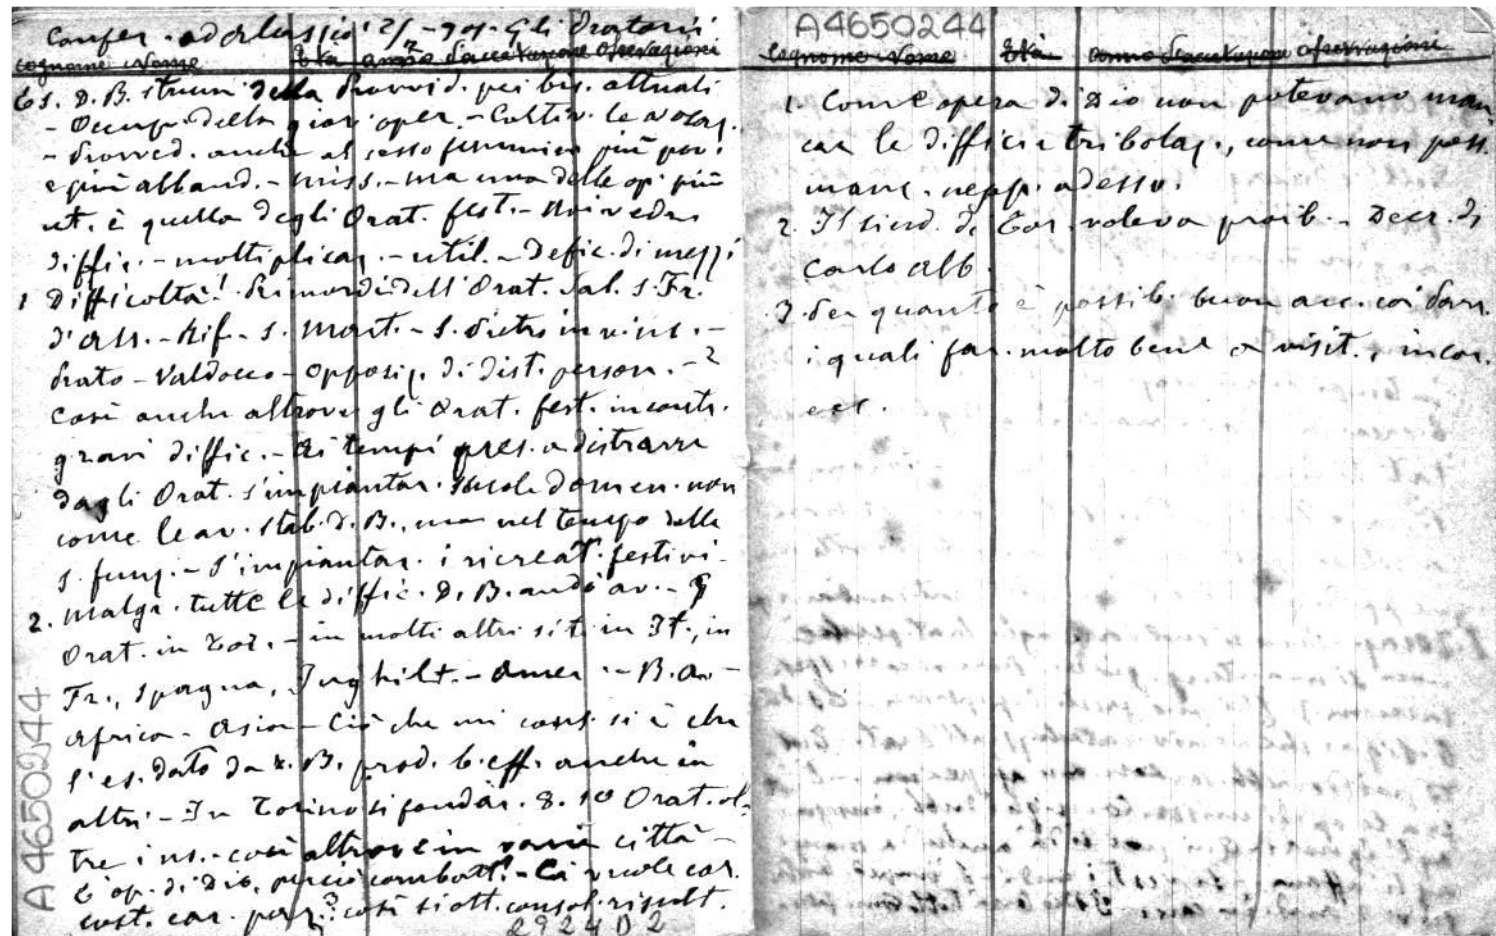 Confer. ad Alassio 2/2-901. Gli Oratorii
Cognome Nome Età anno d'accettazione Osservazioni
Es. D. B. strum. della Provvid. pei bis. attuali
- Occup. della giov. oper. - Coltiv. le vocaz.
- Provved. anche al sesso femminin. più pov.
e più abband. - Miss. - Ma una delle op. più
ut. è quella degli Orat. fest. - Noi vedr.
diffic. - moltiplicaz. - util. - Defic. di mezzi
1 Difficoltà! Primordi dell'Orat. Sal. S. Fr.
d'Ass. - Rif. - S. Mart. - S. Pietro in vinc. -
Prato - Valdocco - Opposiz. di dist. person. - 2
Così anche altrove gli Orat. fest. incontr.
gravi diffic. - Ai tempi pres. a distrarre
dagli Orat. s'impiantar. scuole domen. non
come le av. stab. D. B., ma nel tempo delle
s. funz. - S'impiantar. i ricreat. festivi -
2. Malgr. tutte le diffic. D. B. andò av. - 
Orat. in Tor. - in molti altri siti in It., in
Fr., Spagna, Inghilt. - Amer. - B. A. -
Africa - Asia - Ciò che mi cons. si è che
l'es. dato da D. B. prod. b. eff. anche in
altri - In Torino si fondar. 8. 10 Orat. ol-
tre i ns. - così altrove in varie città -
È op. di Dio, perciò combatt. - Ci vuole cor.
cost. car. paz. 3 così si ott. consol. risult.
2924D2
A4650244
A4650244
Cognome Nome Età anno d'accettazione Osservazioni
1. Come opera di Dio non potevano man-
car le diffic. e tribolaz., come non poss.
manc. nepp. adesso.
2. Il sind. di Tor. voleva proib. - Decr. di
Carlo Alb.
3. Per quanto è possib. buon acc. coi Parr.
i quali far. molto bene a visit., incor.
ecc.